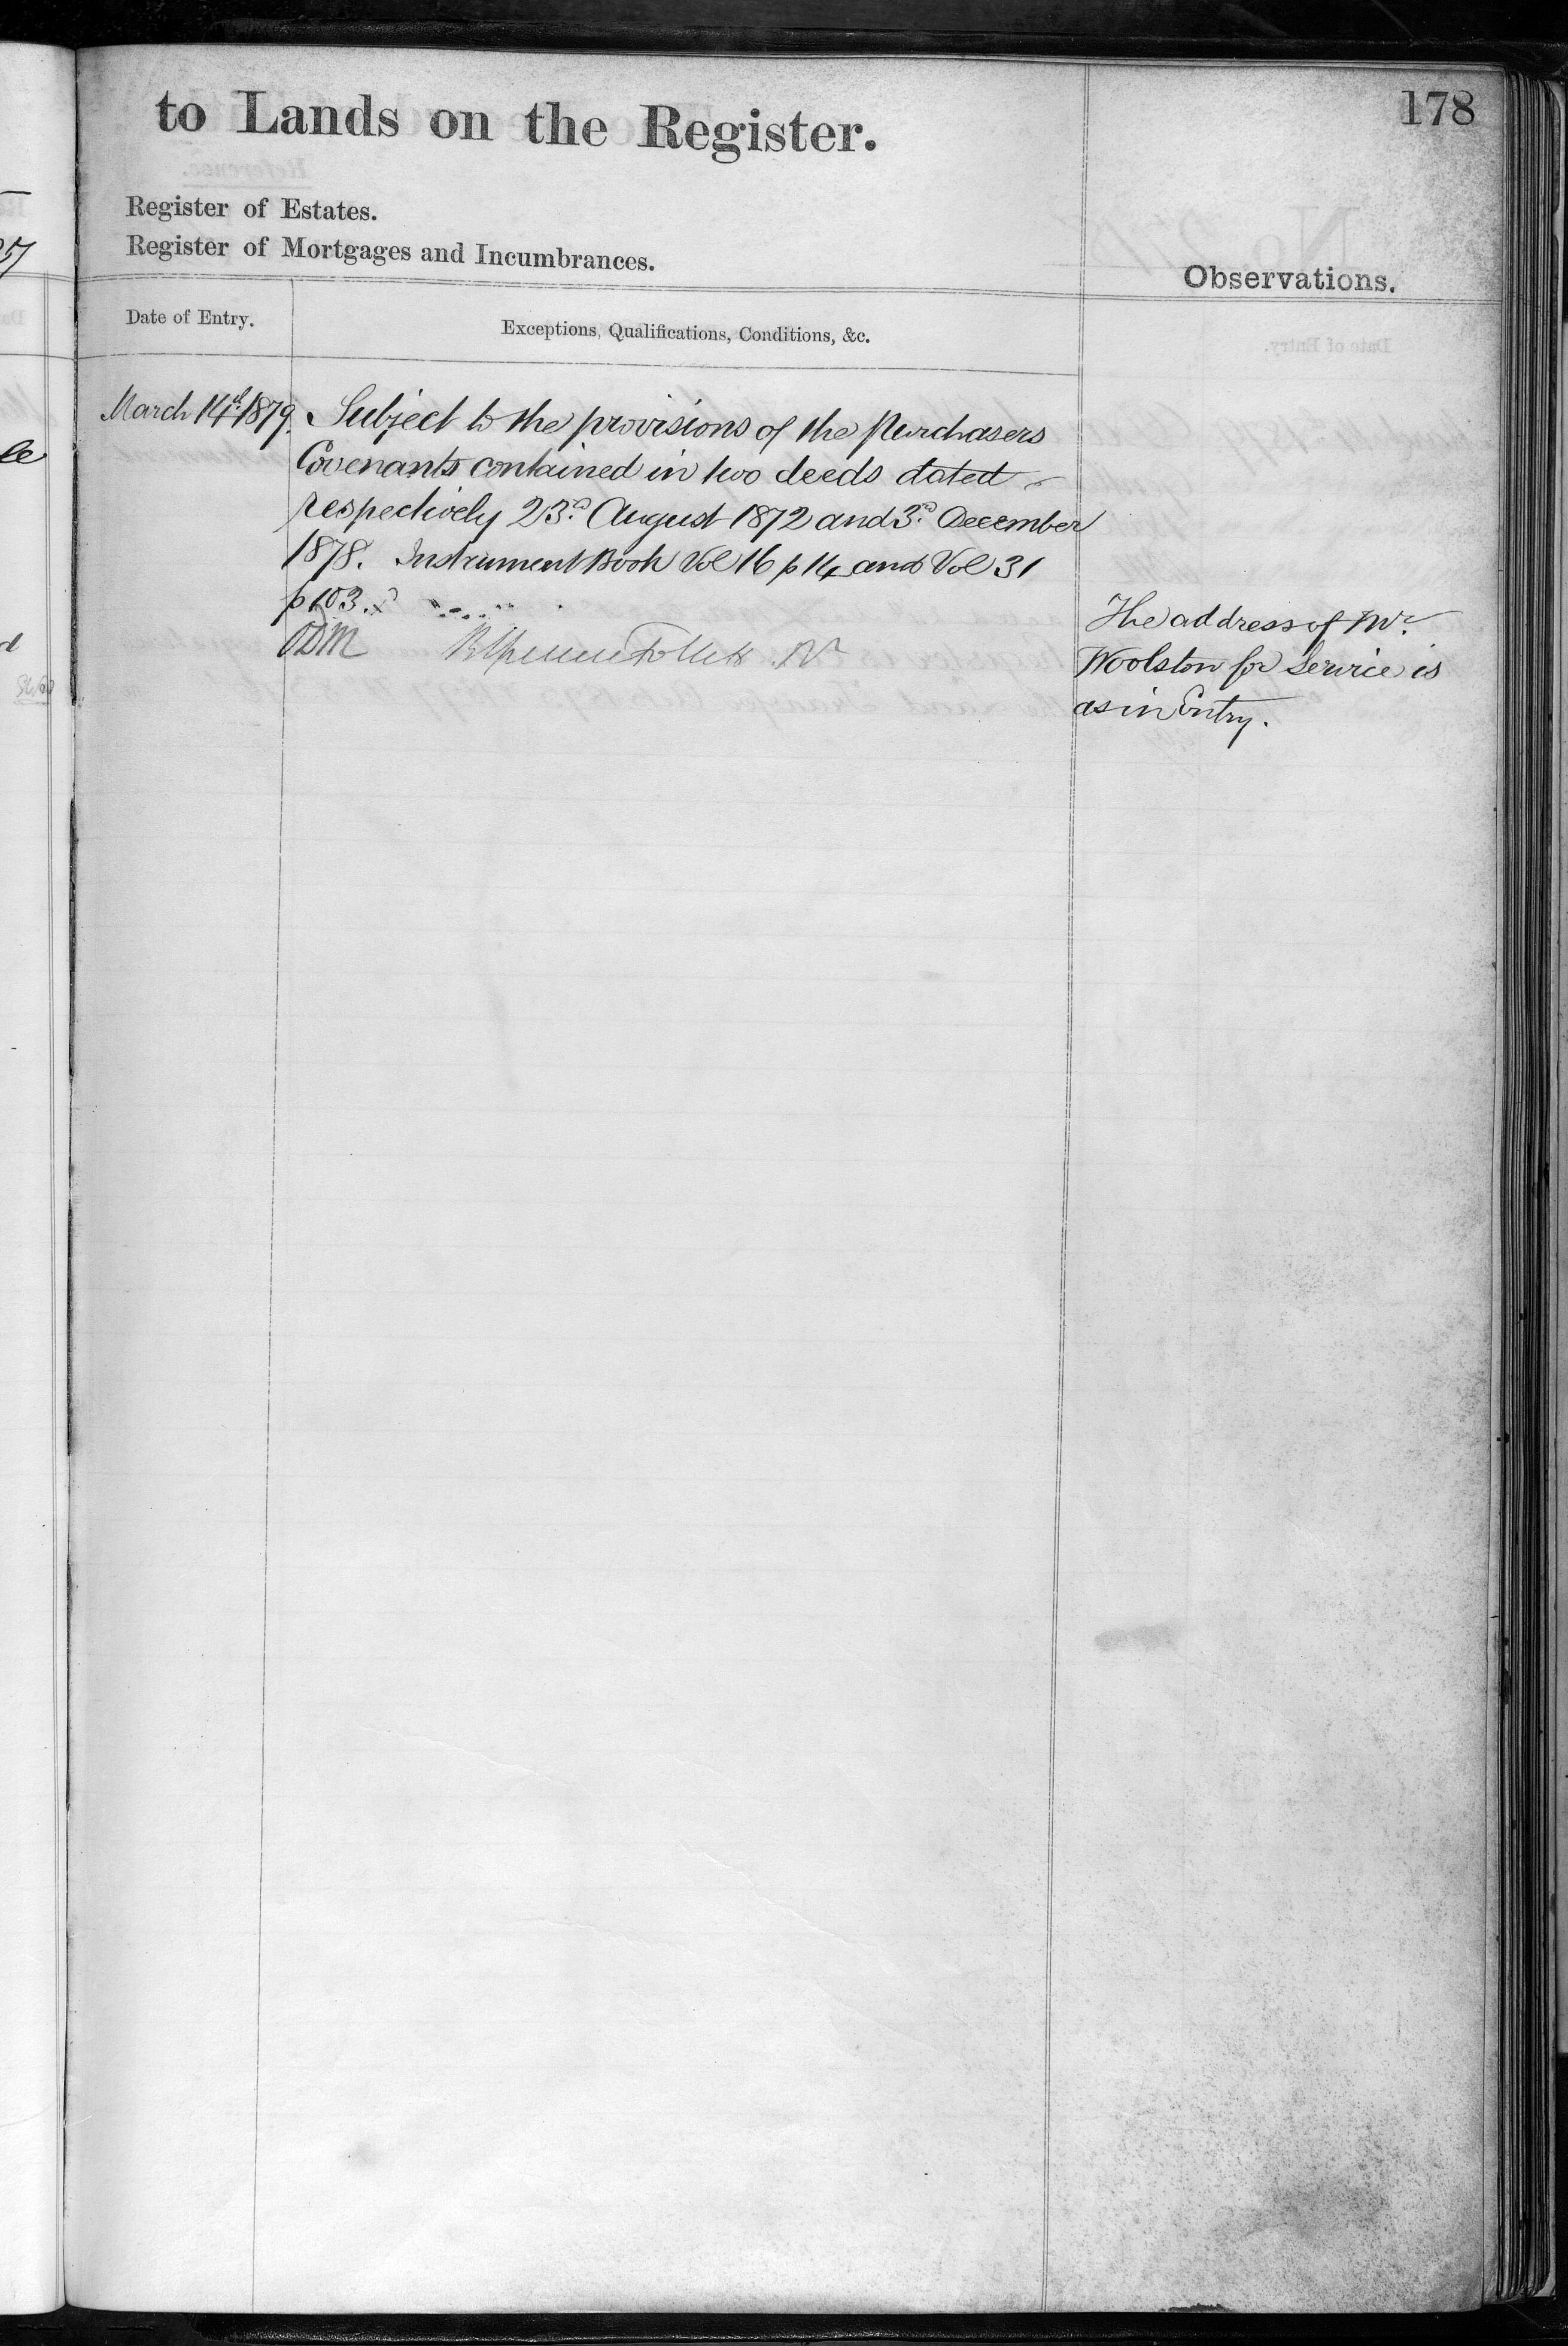 178
to Lands on the Register.
Register of Estates.
Register of Mortgages and Incumbrances.
Observations.
Date of Entry.
Exceptions, Qualifications, Conditions, &c.
March 14th 1879.
Subject to the provisions of the Purchasers
Covenants contained in two deeds dated
respectively 23rd August 1872 and 3rd December
1878. Instrument Book Vol 16 p 14 and Vol 31
p 103.
ODM
The address of Mr.
Woolston for Service is
as in Entry.